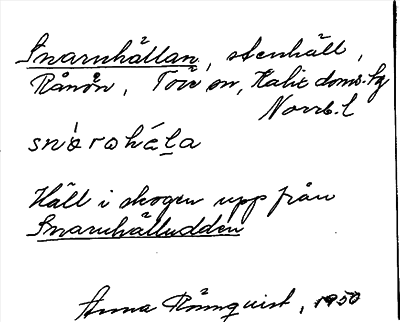 Snarnhällan, stenhäll,
Rånön, Töre sn, Kalix doms. lg
Norrb. l
Häll i skogen upp från
Snarnhälludden
Anna Rönnquist, 1950